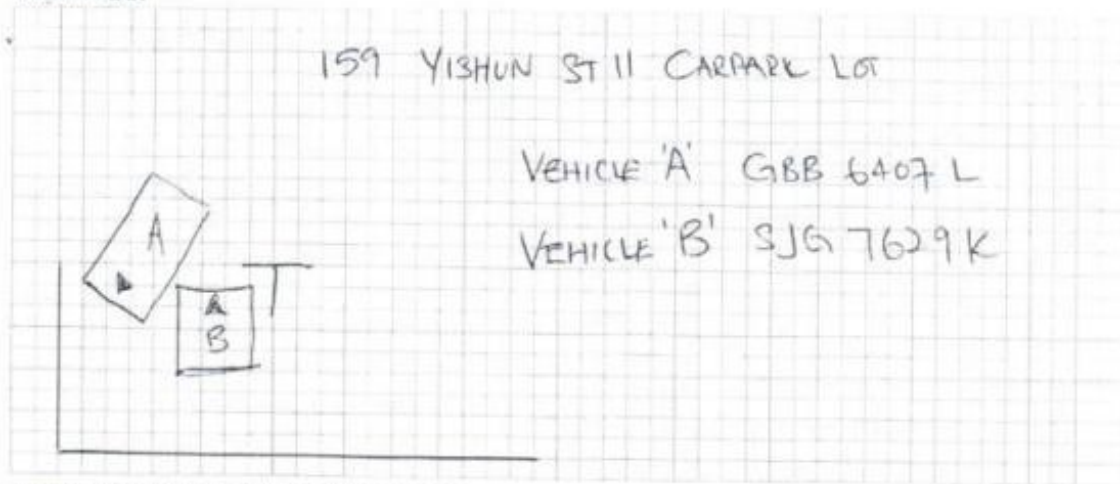 159 YISHUN ST 11 CARPARK LOT
VEHICLE 'A' GBB 6407 L
VEHICLE 'B' SJG 7629K
A
B